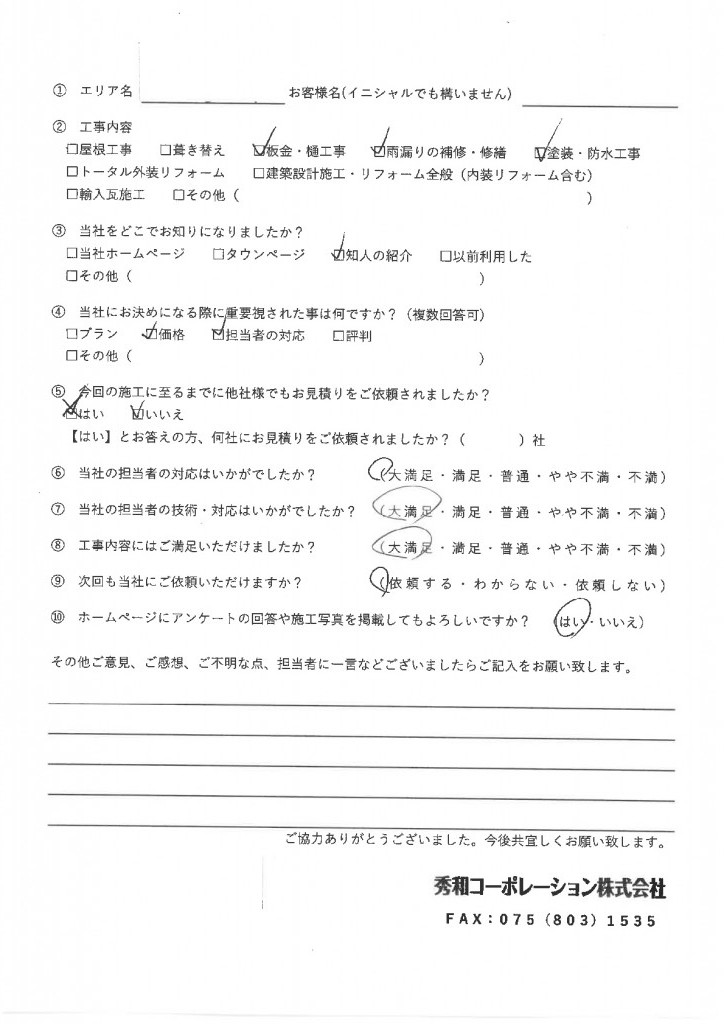 ① エリア名 お客様名(イニシャルでも構いません)
② 工事内容
□屋根工事 □葺き替え ☑板金・樋工事 ☑雨漏りの補修・修繕 ☑塗装・防水工事
□トータル外装リフォーム □建築設計施工・リフォーム全般（内装リフォーム含む）
□輸入瓦施工 □その他（ ）
③ 当社をどこでお知りになりましたか？
□当社ホームページ □タウンページ ☑知人の紹介 □以前利用した
□その他（ ）
④ 当社にお決めになる際に重要視された事は何ですか？（複数回答可）
□プラン ☑価格 ☑担当者の対応 □評判
□その他（ ）
⑤ 今回の施工に至るまでに他社様でもお見積りをご依頼されましたか？
☑はい ☑いいえ
【はい】とお答えの方、何社にお見積りをご依頼されましたか？（ ）社
⑥ 当社の担当者の対応はいかがでしたか？ （大満足・満足・普通・やや不満・不満）
⑦ 当社の担当者の技術・対応はいかがでしたか？ （大満足・満足・普通・やや不満・不満）
⑧ 工事内容にはご満足いただけましたか？ （大満足・満足・普通・やや不満・不満）
⑨ 次回も当社にご依頼いただけますか？ （依頼する・わからない・依頼しない）
⑩ ホームページにアンケートの回答や施工写真を掲載してもよろしいですか？ （はい・いいえ）
その他ご意見、ご感想、ご不明な点、担当者に一言などございましたらご記入をお願い致します。
ご協力ありがとうございました。今後共宜しくお願い致します。
秀和コーポレーション株式会社
ＦＡＸ：０７５（８０３）１５３５